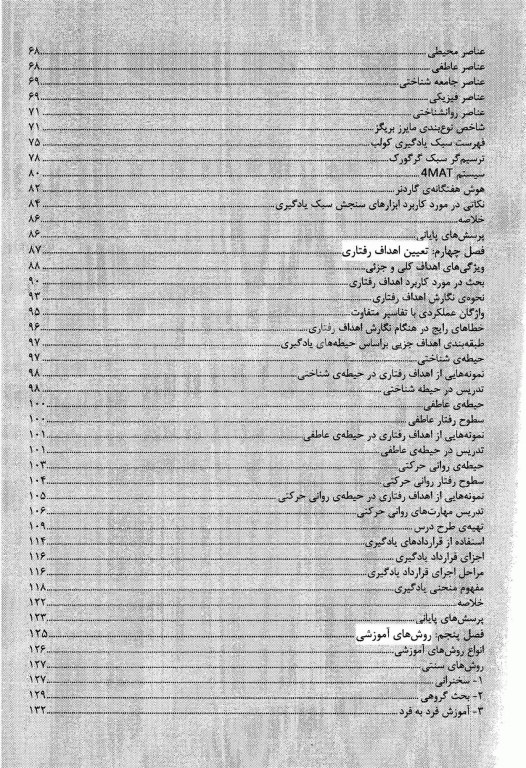 عناصر محیطی ..... ۶۸
عناصر عاطفی ..... ۶۸
عناصر جامعه شناختی ..... ۶۹
عناصر فیزیکی ..... ۶۹
عناصر روانشناختی ..... ۷۱
شاخص نوع‌بندی مایرز بریگز ..... ۷۱
فهرست سبک یادگیری کولب ..... ۷۵
ترسیم‌گر سبک گرگورک ..... ۷۸
سیستم 4MAT ..... ۸۰
هوش هفتگانه‌ی گاردنر ..... ۸۲
نکاتی در مورد کاربرد ابزارهای سنجش سبک یادگیری ..... ۸۴
خلاصه ..... ۸۶
پرسش‌های پایانی ..... ۸۶
فصل چهارم: تعیین اهداف رفتاری ..... ۸۷
ویژگی‌های اهداف کلی و جزئی ..... ۸۸
بحث در مورد کاربرد اهداف رفتاری ..... ۹۰
نحوه‌ی نگارش اهداف رفتاری ..... ۹۳
واژگان عملکردی با تفاسیر متفاوت ..... ۹۵
خطاهای رایج در هنگام نگارش اهداف رفتاری ..... ۹۶
طبقه‌بندی اهداف جزیی براساس حیطه‌های یادگیری ..... ۹۷
حیطه‌ی شناختی ..... ۹۷
نمونه‌هایی از اهداف رفتاری در حیطه‌ی شناختی ..... ۹۸
تدریس در حیطه شناختی ..... ۹۸
حیطه‌ی عاطفی ..... ۱۰۰
سطوح رفتار عاطفی ..... ۱۰۰
نمونه‌هایی از اهداف رفتاری در حیطه‌ی عاطفی ..... ۱۰۱
تدریس در حیطه‌ی عاطفی ..... ۱۰۱
حیطه‌ی روانی حرکتی ..... ۱۰۳
سطوح رفتار روانی حرکتی ..... ۱۰۴
نمونه‌هایی از اهداف رفتاری در حیطه‌ی روانی حرکتی ..... ۱۰۵
تدریس مهارت‌های روانی حرکتی ..... ۱۰۶
تهیه‌ی طرح درس ..... ۱۰۹
استفاده از قراردادهای یادگیری ..... ۱۱۴
اجزای قرارداد یادگیری ..... ۱۱۶
مراحل اجرای قرارداد یادگیری ..... ۱۱۶
مفهوم منحنی یادگیری ..... ۱۱۸
خلاصه ..... ۱۲۲
پرسش‌های پایانی ..... ۱۲۳
فصل پنجم: روش‌های آموزشی ..... ۱۲۵
انواع روش‌های آموزشی ..... ۱۲۶
روش‌های سنتی ..... ۱۲۷
۱- سخنرانی ..... ۱۲۷
۲- بحث گروهی ..... ۱۲۹
۳- آموزش فرد به فرد ..... ۱۳۲